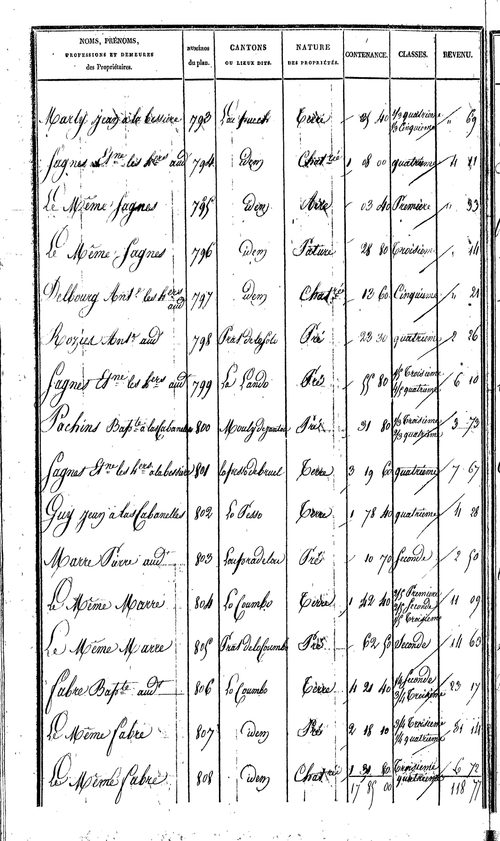 NOMS, PRÉNOMS, PROFESSIONS ET DEMEURES des Propriétaires. NUMÉROS du plan. CANTONS OU LIEUX DITS. NATURE DES PROPRIÉTÉS. CONTENANCE. CLASSES. REVENU.
Marly jean à la bessière 793 Terre " 25 40 1/2 quatrième 1/2 Cinquième " 69
Sagnes Etne les hers aud 794 idem Chatrie 1 08 00 quatrième 4 21
Le Même Sagnes 795 idem Aire " 03 40 Première " 93
Le Même Sagnes 796 idem Pature 28 80 Troisième " 14
Delbourg Ante les hers aud 797 idem Chatrie 13 60 Cinquième " 21
Rozies Ante aud 798 Prat de la Solo Pré 23 30 quatrième 2 26
Sagnes Etne les hers aud 799 La Lando Pré 55 80 1/5 Troisième 4/5 quatrième 6 10
Pachins Bapte à las Cabanelles 800 Pré 31 80 1/3 Troisième 2/3 quatrième 3 73
Sagnes Etne les hers à la bessière 801 Terre 3 19 60 quatrième 7 67
Guy jean à las Cabanelles 802 Lo Pesso Terre 1 78 40 quatrième 4 28
Marre Pierre aud 803 Pré 10 70 Seconde 2 50
Le Même Marre 804 Lo Coumbo Terre 1 42 40 2/5 Première 2/5 Seconde 1/5 Troisième 11 09
Le Même Marre 805 Prat de lo Coumbo Pré 62 50 Seconde 14 63
Fabre Bapte aud 806 Lo Coumbo Terre 4 21 40 1/4 Seconde 3/4 Troisième 23 17
Le Même Fabre 807 idem Pré 2 18 10 3/4 Troisième 1/4 quatrième 31 14
Le Même Fabre 808 idem Chatrie 1 31 80 Troisième quatrième 6 72
17 85 00 118 77